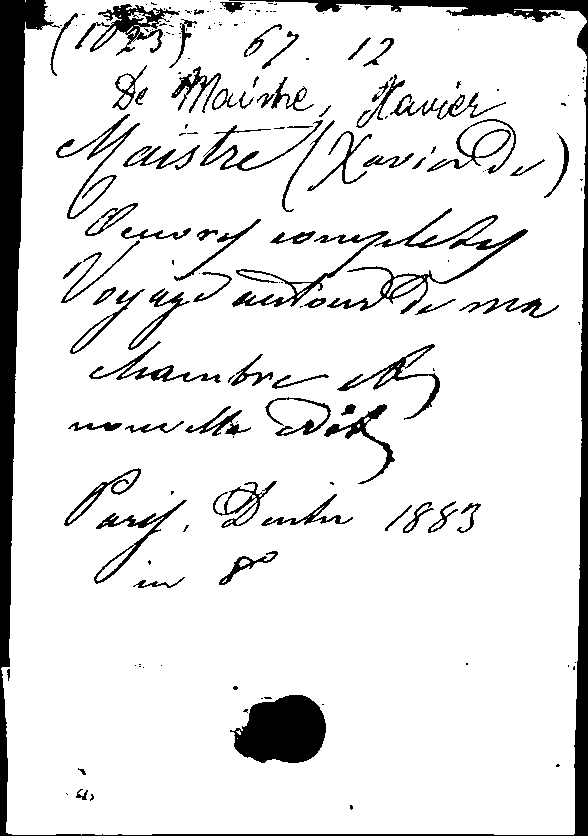 (1023) 67. 12
De Maistre, Xavier
Maistre (Xavier De)
Oeuvres completes
Voyage autour De ma
chambre etc
nouvelle edit
Paris, Dentu 1883
in 8°